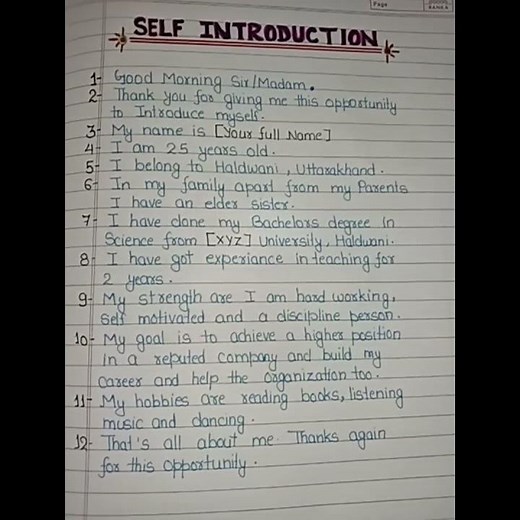 Page
SELF INTRODUCTION
1- Good Morning Sir/Madam.
2- Thank you for giving me this opportunity
to Introduce myself.
3- My name is [Your full Name]
4- I am 25 years old.
5- I belong to Haldwani, Uttarakhand.
6- In my family apart from my Parents
I have an elder sister.
7- I have done my Bachelors degree in
Science from [XYZ] University, Haldwani.
8- I have got experiance in teaching for
2 years.
9- My strength are I am hard working,
self motivated and a discipline person.
10- My goal is to achieve a higher position
in a reputed company and build my
career and help the organization too.
11- My hobbies are reading books, listening
music and dancing.
12- That's all about me. Thanks again
for this opportunity.